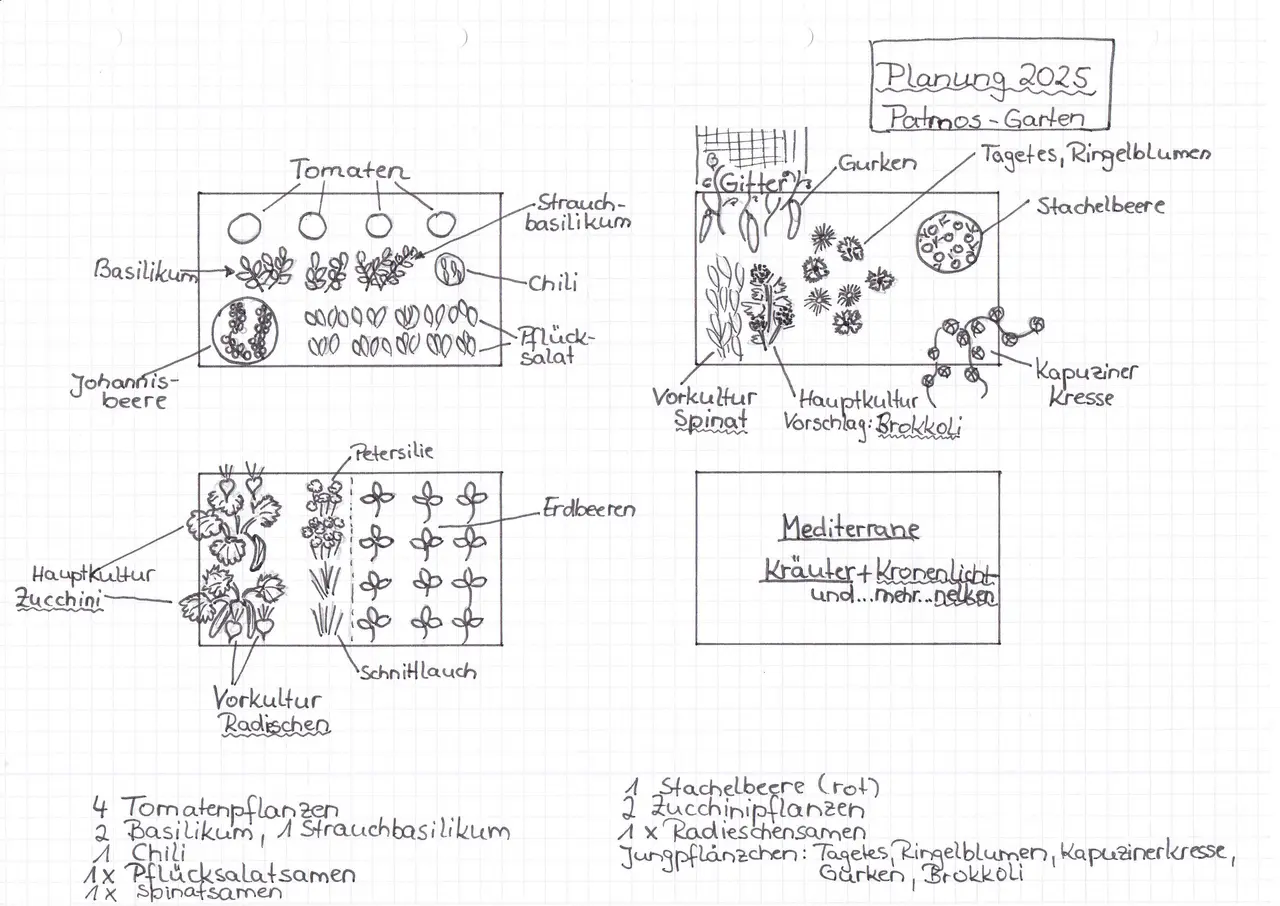 Planung 2025
Patmos-Garten
Tomaten
Strauch-
basilikum
Basilikum
Chili
Pflück-
salat
Johannis-
beere
Gitter
Gurken
Tagetes, Ringelblumen
Stachelbeere
Kapuziner
Kresse
Vorkultur
Spinat
Hauptkultur
Vorschlag: Brokkoli
Petersilie
Erdbeeren
Hauptkultur
Zucchini
Schnittlauch
Vorkultur
Radischen
Mediterrane
Kräuter + Kronenlicht-
und...mehr...nelken
4 Tomatenpflanzen
2 Basilikum, 1 Strauchbasilikum
1 Chili
1x Pflücksalatsamen
1x Spinatsamen
1 Stachelbeere (rot)
2 Zucchinipflanzen
1 x Radieschensamen
Jungpflänzchen: Tagetes, Ringelblumen, Kapuzinerkresse,
Gurken, Brokkoli